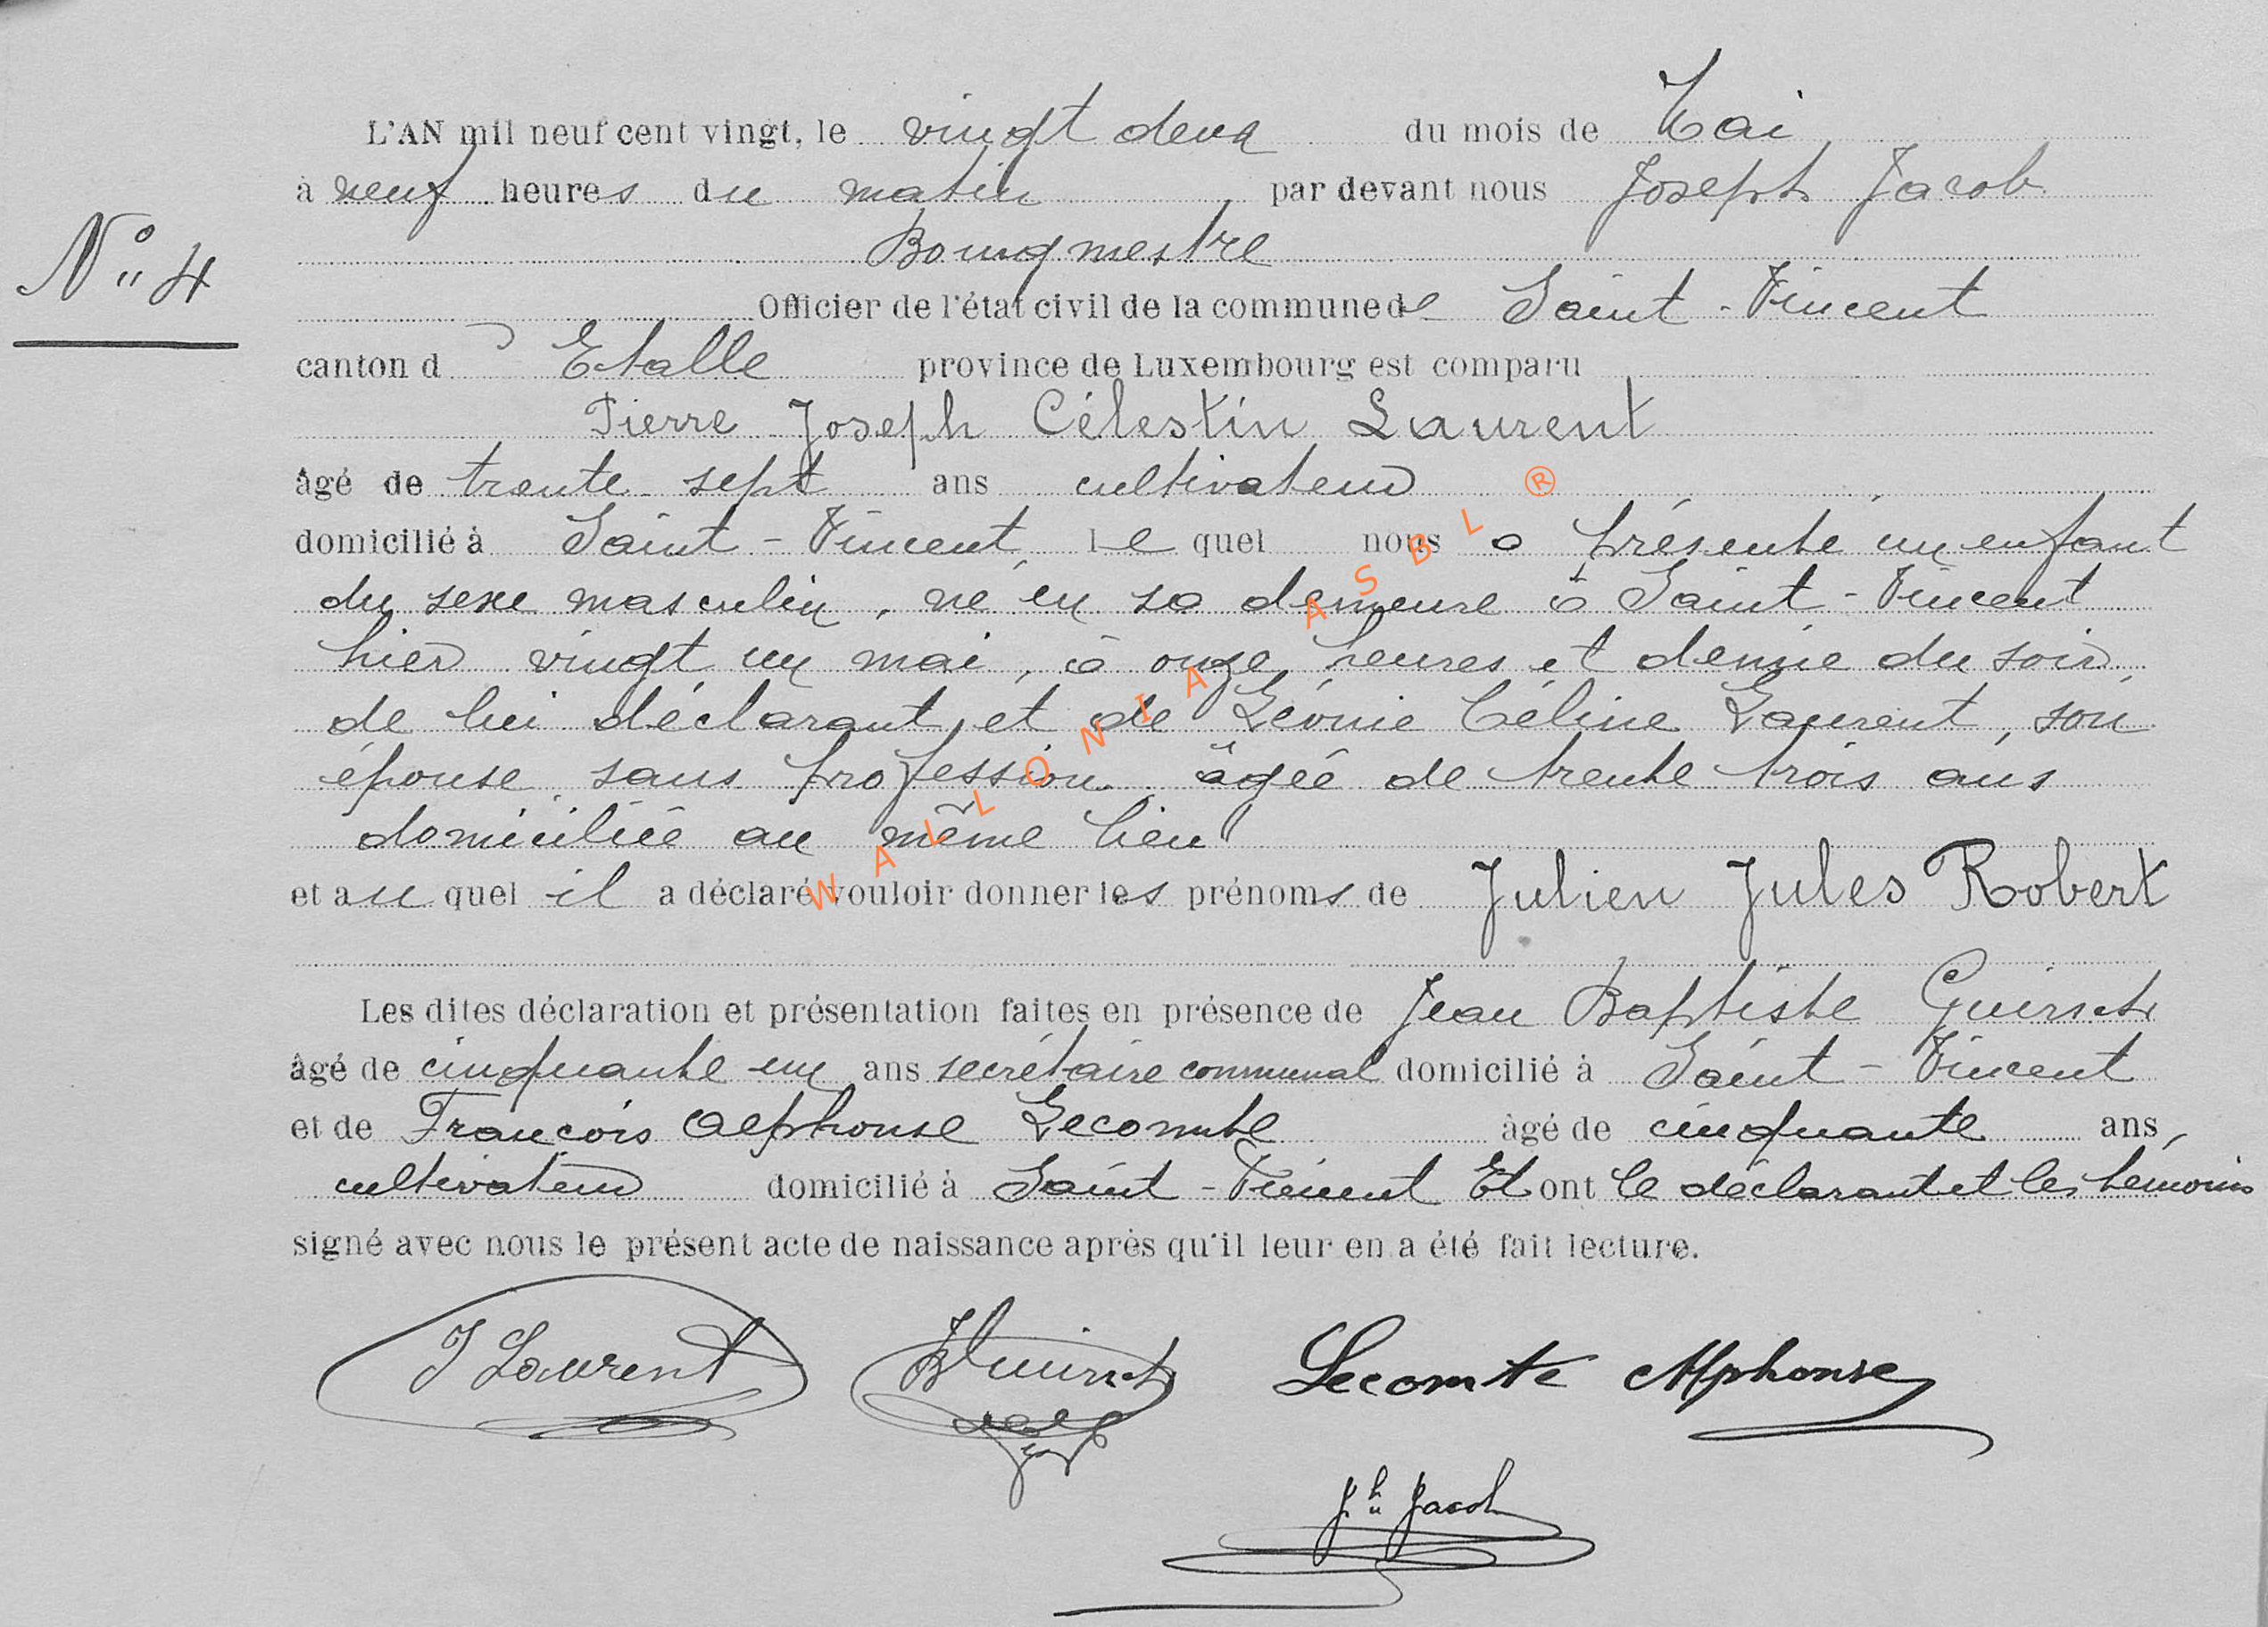 L'AN mil neuf cent vingt, le vingt deux du mois de Mai
à neuf heures du matin par devant nous Joseph Jacob
Bourgmestre
N° 4
Officier de l'état civil de la commune de Saint-Vincent
canton d' Etalle province de Luxembourg est comparu
Pierre Joseph Célestin Laurent
âgé de trente sept ans cultivateur
domicilié à Saint-Vincent lequel nous a présenté un enfant
du sexe masculin, né en sa demeure à Saint-Vincent
hier vingt un mai, à onze heures et demie du soir
de lui déclarant et de Léonie Céline Laurent, son
épouse sans profession âgée de trente trois ans
domiciliée au même lieu
et auquel il a déclaré vouloir donner les prénoms de Julien Jules Robert
Les dites déclaration et présentation faites en présence de Jean Baptiste Guirsch
âgé de cinquante un ans secrétaire communal domicilié à Saint-Vincent
et de François Alphonse Lecomte âgé de cinquante ans,
cultivateur domicilié à Saint-Vincent Et ont le déclarant et les témoins
signé avec nous le présent acte de naissance après qu'il leur en a été fait lecture.
J Laurent JBGuirsch Lecomte Alphonse
Jh Jacob
WALLONIA ASBL ®